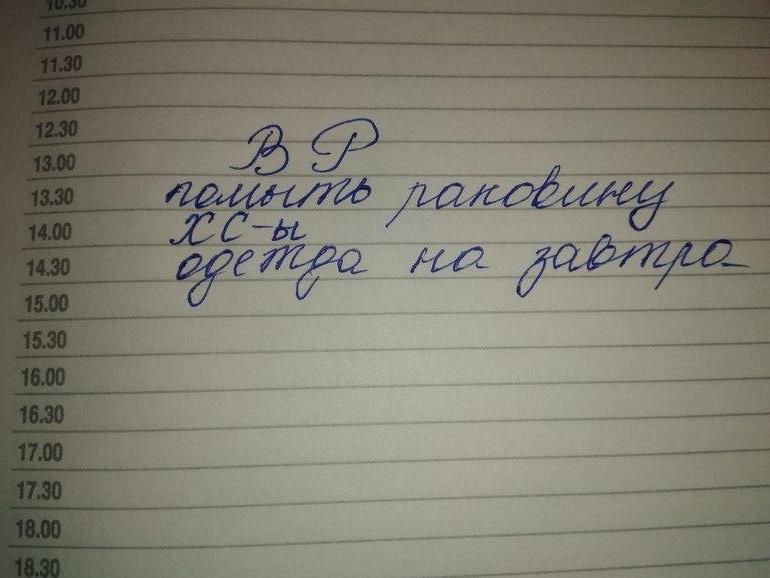 10.30
11.00
11.30
12.00
12.30
ВР
13.00
13.30 помыть раковину
14.00 ХС-ы
14.30 одежда на завтра
15.00
15.30
16.00
16.30
17.00
17.30
18.00
18.30